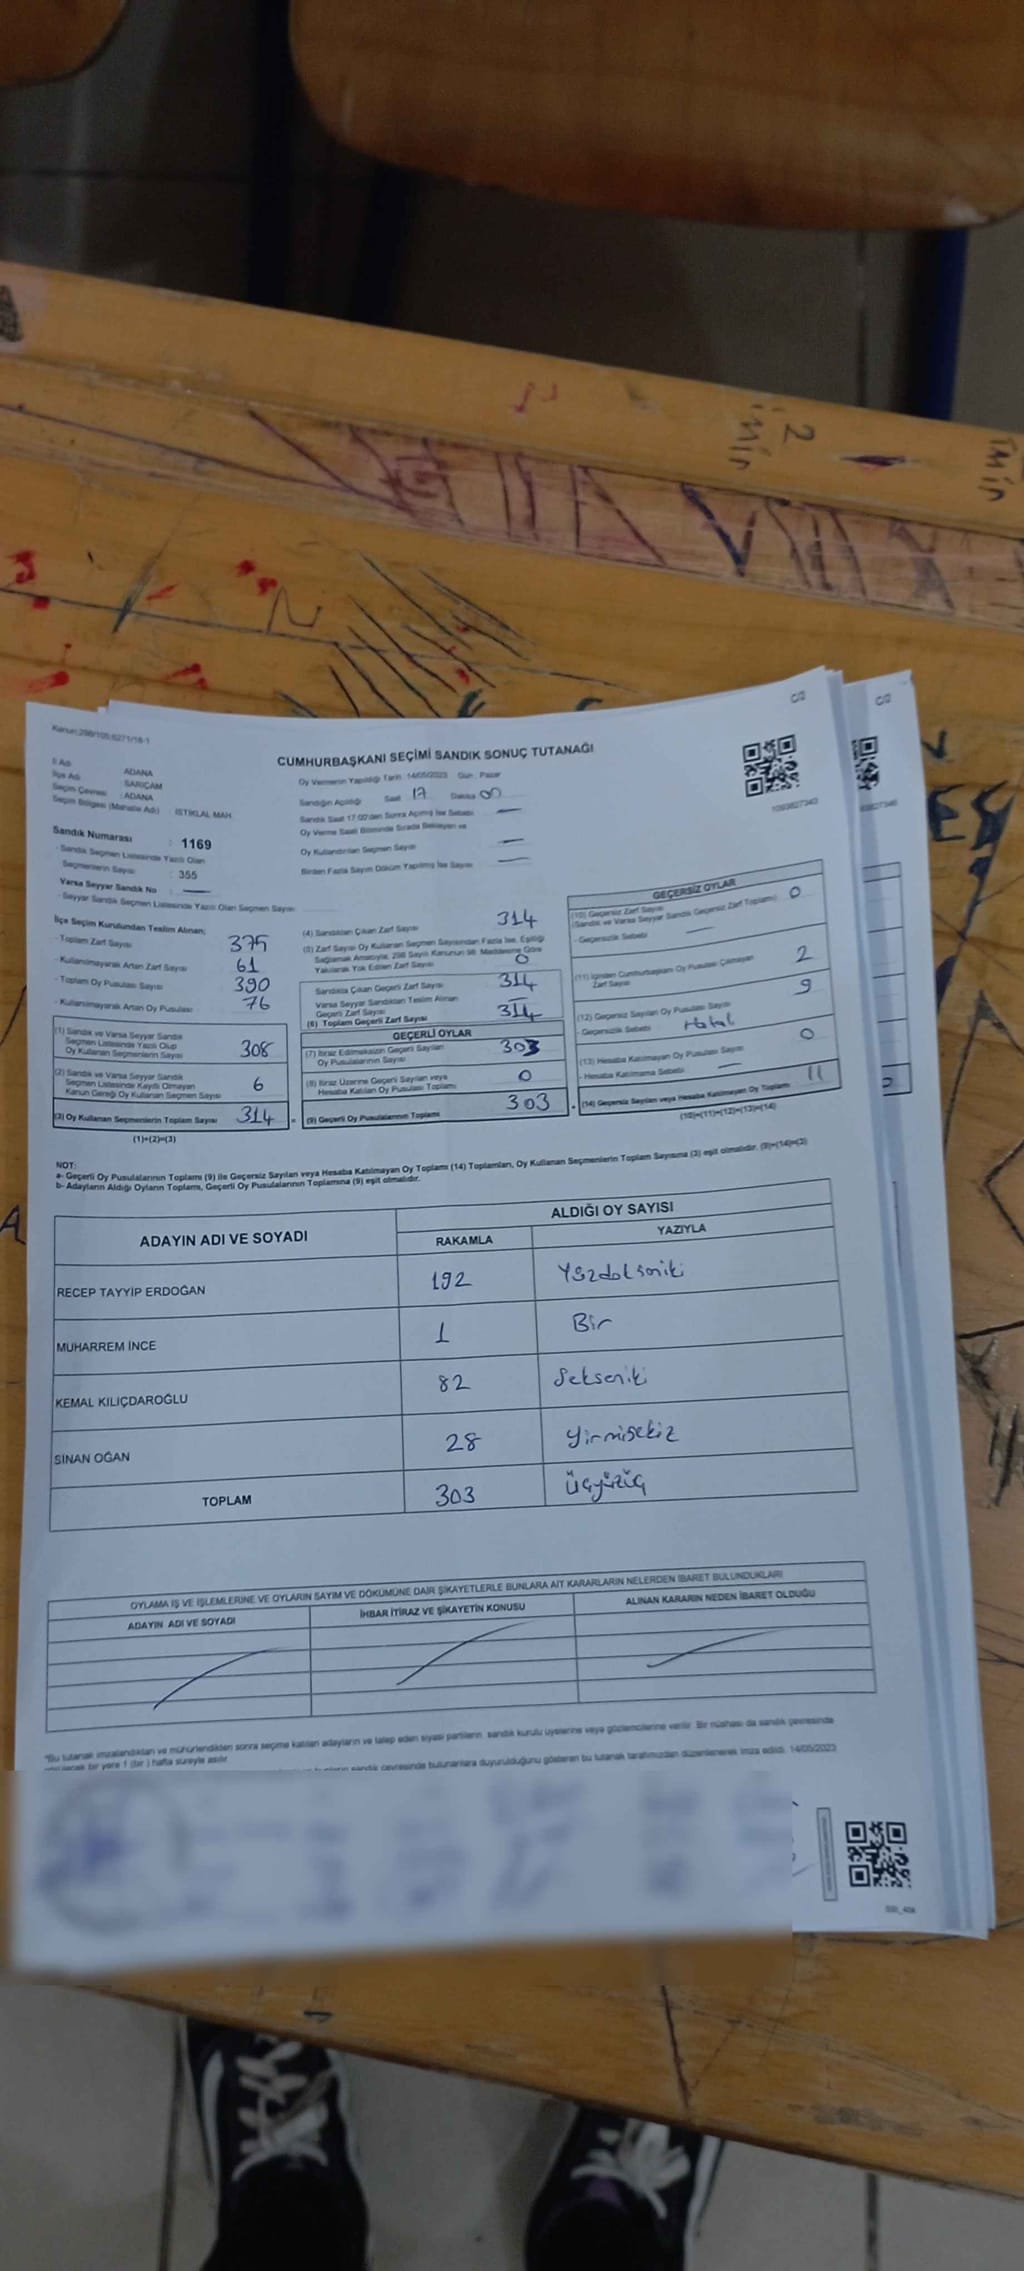 Kanun:298/105;6271/16-1
C/2
C/2
CUMHURBAŞKANI SEÇİMİ SANDIK SONUÇ TUTANAĞI
İl Adı : ADANA
İlçe Adı : SARIÇAM
Seçim Çevresi : ADANA
Seçim Bölgesi (Mahalle Adı) : ISTIKLAL MAH.
Oy Vermenin Yapıldığı Tarih: 14/05/2023 Gün : Pazar
Sandığın Açıldığı Saat 17 Dakika 00
Sandık Saat 17:00'den Sonra Açılmış İse Sebebi —
Oy Verme Saati Bitiminde Sırada Bekleyen ve
Oy Kullandırılan Seçmen Sayısı —
Birden Fazla Sayım Döküm Yapılmış İse Sayısı —
1093827343
Sandık Numarası : 1169
- Sandık Seçmen Listesinde Yazılı Olan
Seçmenlerin Sayısı : 355
Varsa Seyyar Sandık No : —
- Seyyar Sandık Seçmen Listesinde Yazılı Olan Seçmen Sayısı
İlçe Seçim Kurulundan Teslim Alınan;
- Toplam Zarf Sayısı 375
- Kullanılmayarak Artan Zarf Sayısı 61
- Toplam Oy Pusulası Sayısı 390
- Kullanılmayarak Artan Oy Pusulası 76
(1) Sandık ve Varsa Seyyar Sandık
Seçmen Listesinde Yazılı Olup
Oy Kullanan Seçmenlerin Sayısı 308
(2) Sandık ve Varsa Seyyar Sandık
Seçmen Listesinde Kayıtlı Olmayan
Kanun Gereği Oy Kullanan Seçmen Sayısı 6
(3) Oy Kullanan Seçmenlerin Toplam Sayısı 314 =
(1)+(2)=(3)
(4) Sandıktan Çıkan Zarf Sayısı 314
(5) Zarf Sayısı Oy Kullanan Seçmen Sayısından Fazla İse, Eşitliği
Sağlamak Amacıyla, 298 Sayılı Kanunun 98. Maddesine Göre
Yakılarak Yok Edilen Zarf Sayısı 0
Sandıkta Çıkan Geçerli Zarf Sayısı 314
Varsa Seyyar Sandıktan Teslim Alınan
Geçerli Zarf Sayısı —
(6) Toplam Geçerli Zarf Sayısı 314
GEÇERLİ OYLAR
(7) İtiraz Edilmeksizin Geçerli Sayılan
Oy Pusulalarının Sayısı 303
(8) İtiraz Üzerine Geçerli Sayılan veya
Hesaba Katılan Oy Pusulası Toplamı 0
(9) Geçerli Oy Pusulalarının Toplamı 303 +
GEÇERSİZ OYLAR
(10) Geçersiz Zarf Sayısı
(Sandık ve Varsa Seyyar Sandık Geçersiz Zarf Toplamı) 0
- Geçersizlik Sebebi —
(11) İçinden Cumhurbaşkanı Oy Pusulası Çıkmayan
Zarf Sayısı 2
(12) Geçersiz Sayılan Oy Pusulası Sayısı 9
- Geçersizlik Sebebi
(13) Hesaba Katılmayan Oy Pusulası Sayısı 0
- Hesaba Katılmama Sebebi —
(14) Geçersiz Sayılan veya Hesaba Katılmayan Oy Toplamı 11
(10)+(11)+(12)+(13)=(14)
NOT:
a- Geçerli Oy Pusulalarının Toplamı (9) ile Geçersiz Sayılan veya Hesaba Katılmayan Oy Toplamı (14) Toplamları, Oy Kullanan Seçmenlerin Toplam Sayısına (3) eşit olmalıdır. (9)+(14)=(3)
b- Adayların Aldığı Oyların Toplamı, Geçerli Oy Pusulalarının Toplamına (9) eşit olmalıdır.
ADAYIN ADI VE SOYADI
ALDIĞI OY SAYISI
RAKAMLA YAZIYLA
RECEP TAYYİP ERDOĞAN 192 Yüzdoksaniki
MUHARREM İNCE 1 Bir
KEMAL KILIÇDAROĞLU 82 Sekseniki
SİNAN OĞAN 28 Yirmisekiz
TOPLAM 303 Üçyüzüç
OYLAMA İŞ VE İŞLEMLERİNE VE OYLARIN SAYIM VE DÖKÜMÜNE DAİR ŞİKAYETLERLE BUNLARA AİT KARARLARIN NELERDEN İBARET BULUNDUKLARI
ADAYIN ADI VE SOYADI İHBAR İTİRAZ VE ŞİKAYETİN KONUSU ALINAN KARARIN NEDEN İBARET OLDUĞU
*Bu tutanak imzalandıktan ve mühürlendikten sonra seçime katılan adayların ve talep eden siyasi partilerin sandık kurulu üyelerine veya gözlemcilerine verilir. Bir nüshası da sandık çevresinde
bir yere 1 (bir) hafta süreyle asılır.
sandık çevresinde bulunanlara duyurulduğunu gösteren bu tutanak tarafımızdan düzenlenerek imza edildi. 14/05/2023